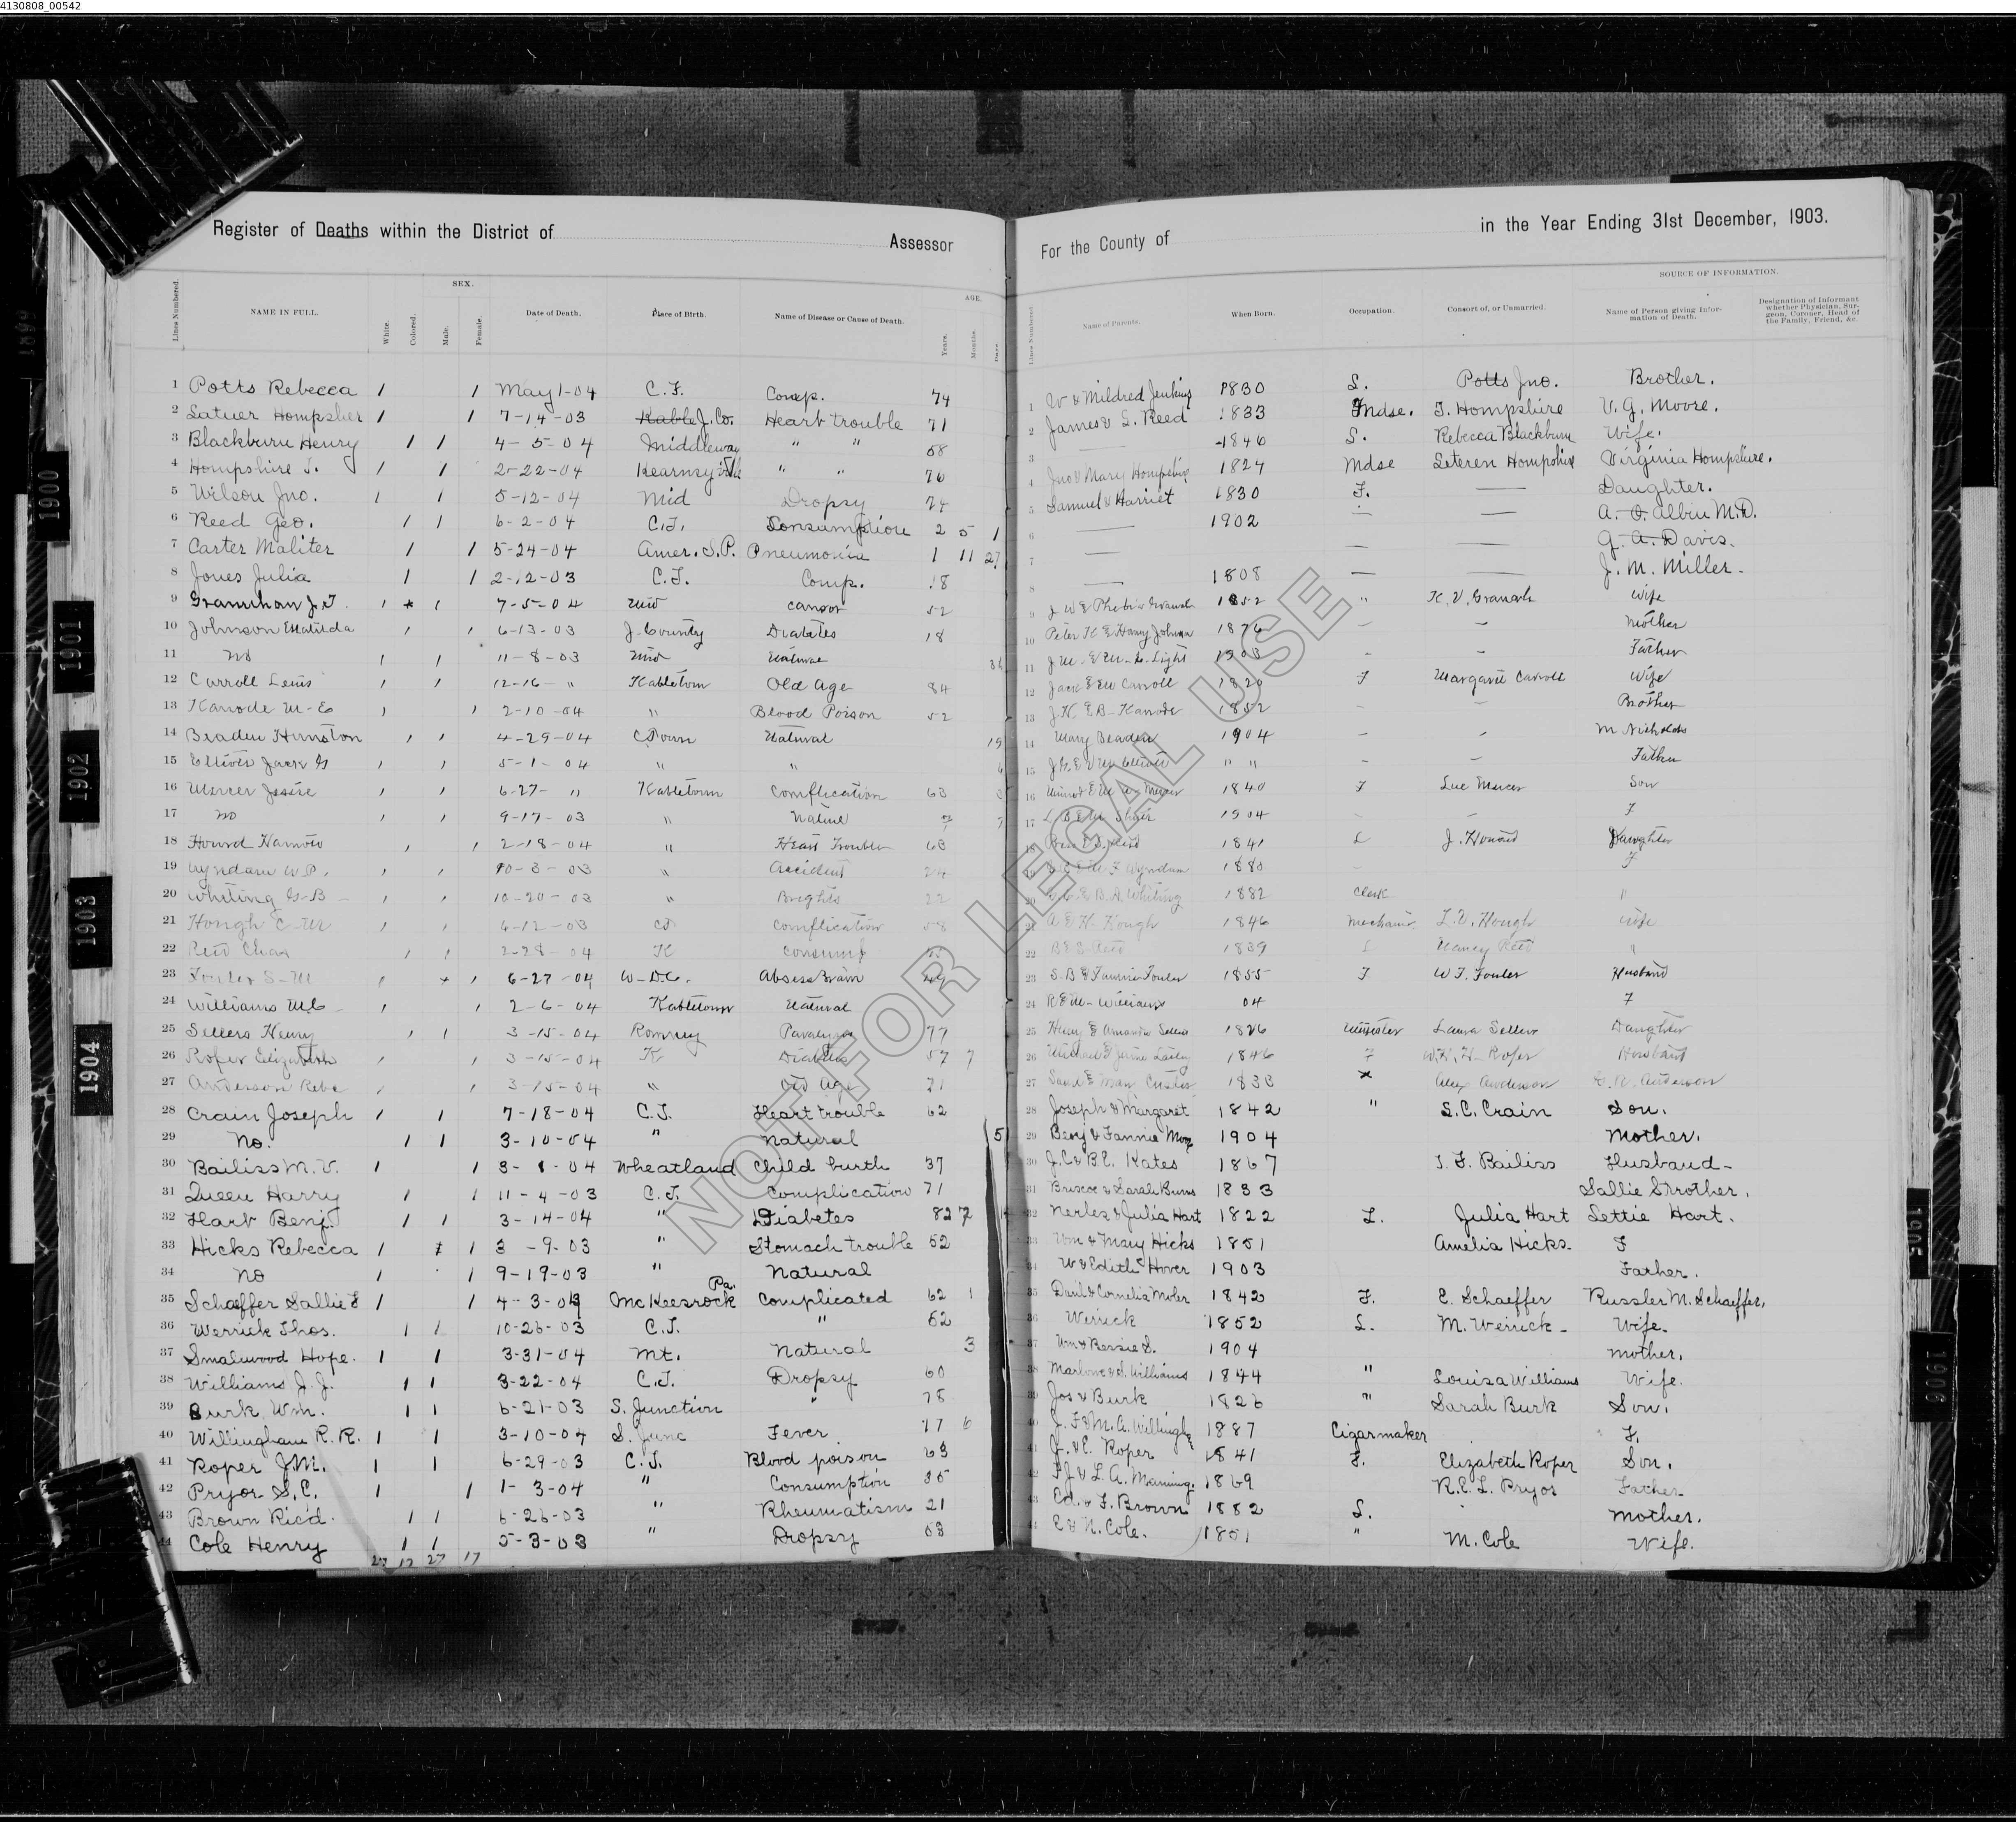 4130808_00542
Register of Deaths within the District of Assessor
For the County of in the Year Ending 31st December, 1903.
Lines Numbered. NAME IN FULL. White. Colored. SEX. Male. Female. Date of Death. Place of Birth. Name of Disease or Cause of Death. AGE. Years. Months. Days
Lines Numbered Name of Parents. When Born. Occupation. Consort of, or Unmarried. SOURCE OF INFORMATION. Name of Person giving Information of Death. Designation of Informant whether Physician, Surgeon, Coroner, Head of the Family, Friend, &c.
1 Potts Rebecca 1 1 May 1-04 C.T. Comp. 74 1 W & Mildred Jenkins 1830 L. Potts Jno. Brother.
2 Hompshier 1 1 7-14-03 Kable J. Co. Heart trouble 71 2 James & L. Reed 1833 Mdse. T. Hompshire V. G. Moore.
3 Blackburn Henry 1 1 4-5-04 Middleway " " 58 3 — 1846 L. Rebecca Blackburn Wife.
4 Hompshire T. 1 1 2-22-04 Kearneysville " " 76 4 Jno & Mary Hompshire 1827 Mdse Hompshire Virginia Hompshire.
5 Wilson Jno. 1 1 5-12-04 Mid Dropsy 74 5 Samuel & Harriet 1830 F. — Daughter.
6 Reed Geo. 1 1 6-2-04 C.T. Consumption 2 5 1 6 — 1902 — — A. O. Albin M.D.
7 Carter Maliter 1 1 5-24-04 Amer. S.P. Pneumonia 1 11 27 7 — — — G. A. Davis.
8 Jones Julia 1 1 2-12-03 C.T. Comp. 18 8 — 1808 — — J. M. Miller.
9 J. T. 1 1 7-5-04 Mid cancer 52 9 1852 " K. V. Wife
10 Johnson Matilda 1 1 6-13-03 J. County Diabetes 18 10 Peter H & Johnson 1876 - - Mother
11 No 1 1 11-8-03 Mid Natural 11 J M & M. Light 1903 - - Father
12 Carroll Lewis 1 1 12-16- " Kabletown Old Age 84 12 Jack & M Carroll 1820 F Margaret Carroll Wife
13 M-E 1 1 2-10-04 " Blood Poison 52 13 J. H. & B. 1852 - - Brother
14 Beaden 1 1 4-29-04 CTown Natural 14 Mary Beaden 1904 - - M Nicholds
15 Elliott 1 1 5-1-04 " " 15 " " - - Father
16 Mercer Jessie 1 1 6-27- " Kabletown Complication 63 16 1840 F Lue Mercer Son
17 No 1 1 9-17-03 " Natural 17 1904 - - F
18 Howard 1 1 2-18-04 " Heart Trouble 63 18 1841 L J. Howard Daughter
19 Wyndam W P. 1 1 10-3-03 " Accident 24 Wyndam 1880 - F
20 Whiting G-B 1 1 10-20-03 " Brights 22 20 & B. A Whiting 1882 Clerk "
21 Hough C-M 1 1 6-12-03 Complication 58 21 A & H. Hough 1846 Mechanic L. V. Hough Wife
22 Reid Chas 1 1 2-28-04 K Consump 22 1839 L Nancy Reid "
23 Fowler S-M 1 1 6-27-04 W-D.C. Absess Brain 23 S. B & Fannie Fowler 1855 F W T. Fowler Husband
24 Williams 1 1 2-6-04 Kabletown Natural 24 R & M- Williams 04 F
25 Sellers Henry 1 1 3-15-04 Romney Paralysis 77 25 Henry & Amanda Sellers 1826 Minister Laura Sellers Daughter
26 Roper Elizabeth 1 1 3-15-04 K Diabetes 57 7 26 1846 F W.H.H. Roper Husband
27 Anderson Rebe 1 1 3-15-04 " Old Age 71 27 1833 Alex Anderson Anderson
28 Crain Joseph 1 1 7-18-04 C.T. Heart trouble 62 28 Joseph & Margaret 1842 " S. C. Crain Son.
29 No. 1 1 3-10-04 " Natural 5 29 Benj & Fannie 1904 Mother.
30 Bailiss M. V. 1 1 3-1-04 Wheatland Child birth 37 30 J. C & B. E. Kates 1867 T. F. Bailiss Husband-
31 Queen Harry 1 1 11-4-03 C.T. Complication 71 31 Briscoe & Sarah Burns 1833 Sallie Strother.
32 Hart Benj. 1 1 3-14-04 " Diabetes 82 7 32 & Julia Hart 1822 L. Julia Hart Lettie Hart.
33 Hicks Rebecca 1 1 3-9-03 " Stomach trouble 52 33 Wm & Mary Hicks 1851 Amelia Hicks. F
34 No 1 1 9-19-03 " Natural W & Edith Hover 1903 Father.
35 Schaeffer Sallie 1 1 4-3-04 McKeesrock Pa. Complicated 62 1 35 Danl & Cornelia Moler 1842 F. E. Schaeffer Russler M. Schaeffer.
36 Werrick Thos. 1 1 10-26-03 C.T. " 52 36 Werrick 1852 L. M. Werrick- Wife-
37 Smalwood Hope. 1 1 3-31-04 Mt. Natural 3 37 Wm & Bessie S. 1904 Mother.
38 Williams J. J. 1 1 3-22-04 C.T. Dropsy 60 38 Marlowe & S. Williams 1844 " Louisa Williams Wife.
39 Burk Wm. 1 1 6-21-03 S. Junction " 78 39 Jos & Burk 1826 " Sarah Burk Son.
40 Willingham R. R. 1 1 3-10-04 S. Junc Fever 17 6 40 J. F & M. A. 1887 Cigarmaker F.
41 Roper J. M. 1 1 6-29-03 C.T. Blood poison 63 41 J. & E. Roper 1841 F. Elizabeth Roper Son.
42 Pryor S. C. 1 1 1-3-04 " Consumption 35 42 & L. A. Manning. 1869 R. E. L. Pryor Father
43 Brown Ric'd. 1 1 6-26-03 " Rheumatism 21 43 Ed. & F. Brown 1882 L. Mother.
44 Cole Henry 1 1 5-3-03 " Dropsy 53 44 E & N. Cole. 1851 " M. Cole Wife.
27 17 27 17
NOT FOR LEGAL USE
1900
1901
1902
1903
1904
1905
1906